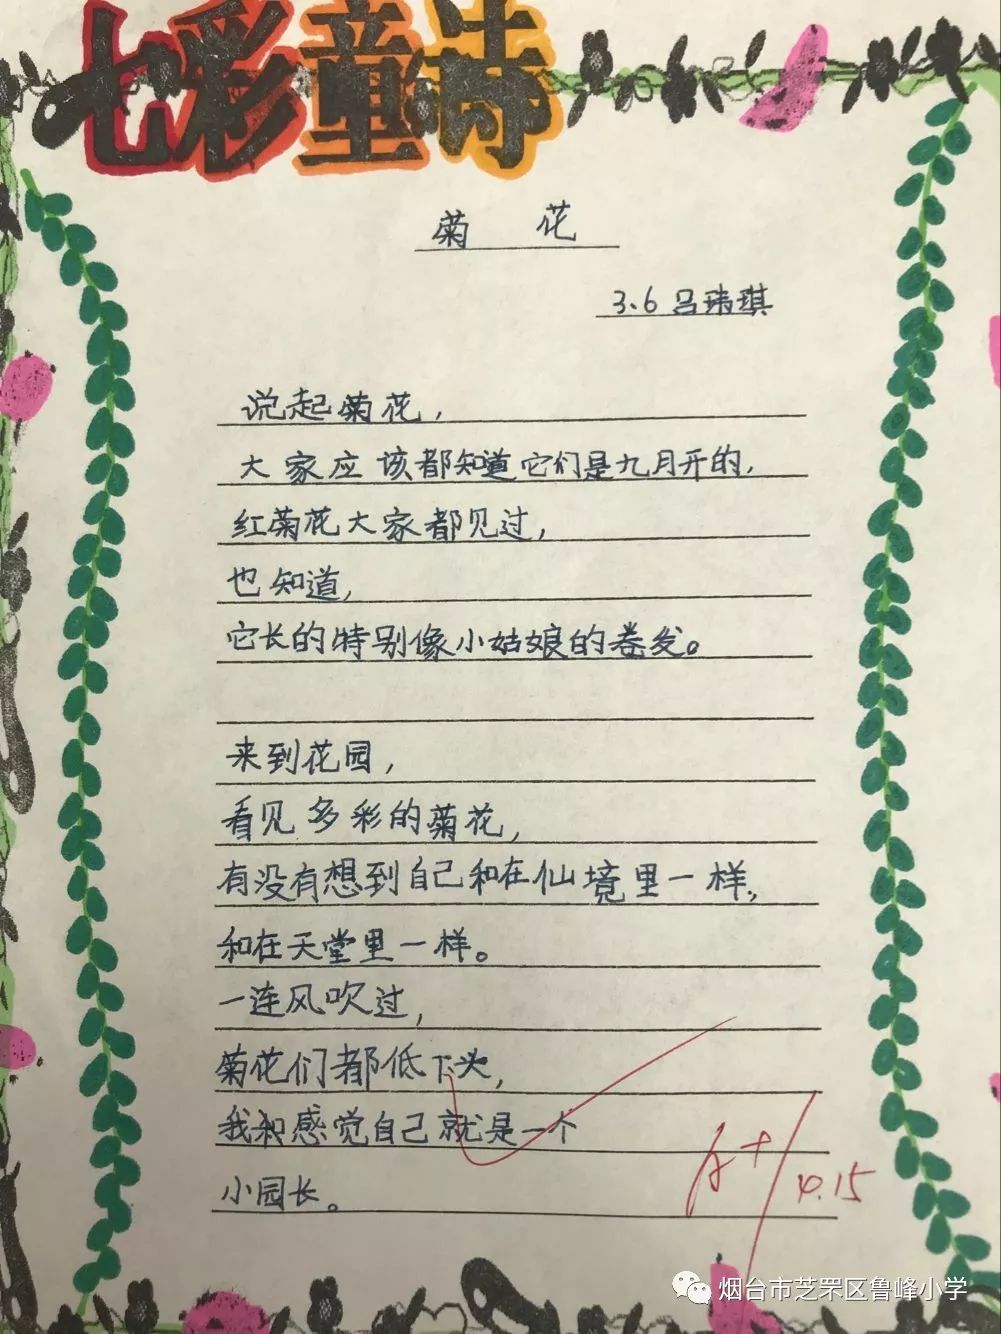 七彩童诗
菊 花
3.6 吕玮琪
说起菊花，
大家应该都知道它们是九月开的，
红菊花大家都见过，
也知道，
它长的特别像小姑娘的卷发。
来到花园，
看见多彩的菊花，
有没有想到自己和在仙境里一样，
和在天堂里一样。
一连风吹过，
菊花们都低下头，
我和感觉自己就是一个
小园长。
A+
10.15
烟台市芝罘区鲁峰小学